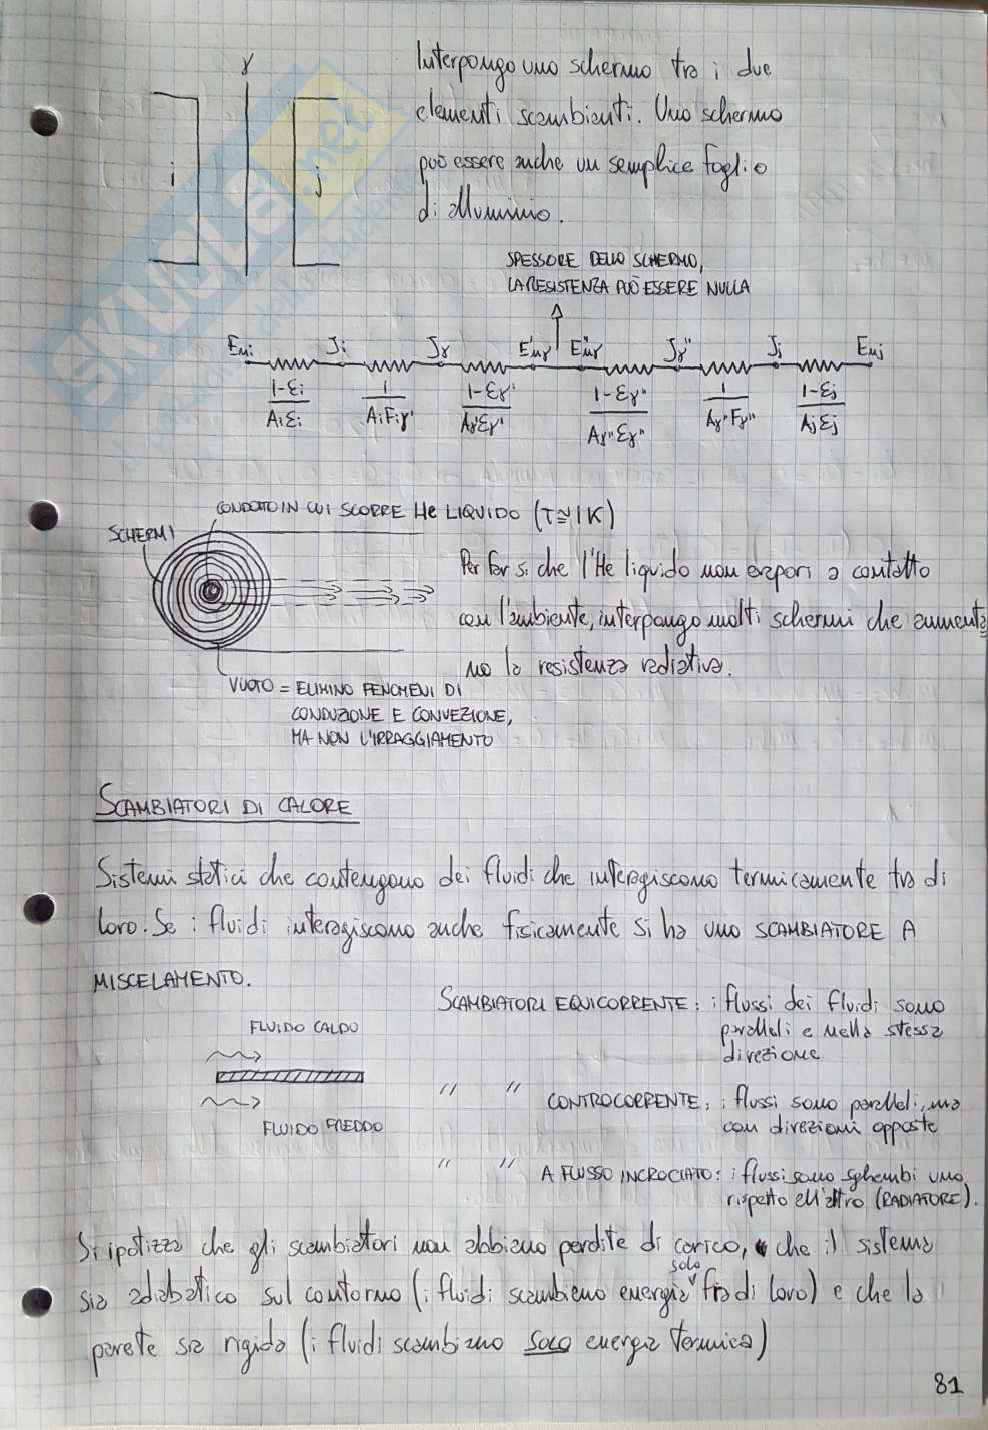 γ
Interpongo uno schermo tra i due
elementi scambianti. Uno schermo
può essere anche un semplice foglio
di alluminio.
i
j
SKUOLA.net
SPESSORE DELLO SCHERMO,
LA RESISTENZA PUÒ ESSERE NULLA
Eni Ji Jγ E'nγ E''nγ Jγ'' Jj Enj
1-εi / Aiεi 1 / AiFiγ' 1-εγ' / Aγ'εγ' 1-εγ'' / Aγ''εγ'' 1 / Aγ''Fγ'' 1-εj / Ajεj
CONDOTTO IN CUI SCORRE He LIQUIDO (T≅1K)
SCHERMI
Per far sì che l'He liquido non evapori a contatto
con l'ambiente, interpongo molti schermi che aumenta
no la resistenza radiativa.
VUOTO = ELIMINO FENOMENI DI
CONDUZIONE E CONVEZIONE,
MA NON L'IRRAGGIAMENTO
SCAMBIATORI DI CALORE
Sistemi statici che contengono dei fluidi che interagiscono termicamente tra di
loro. Se i fluidi interagiscono anche fisicamente si ha uno SCAMBIATORE A
MISCELAMENTO.
SCAMBIATORI EQUICORRENTE: i flussi dei fluidi sono
paralleli e nella stessa
direzione
FLUIDO CALDO
FLUIDO FREDDO
" " CONTROCORRENTE: i flussi sono paralleli, ma
con direzioni opposte
" " A FLUSSO INCROCIATO: i flussi sono sghembi uno
rispetto all'altro (RADIATORE).
Si ipotizza che gli scambiatori non abbiano perdite di carico, che il sistema
sia adiabatico sul contorno (i fluidi scambiano energia solo fra di loro) e che la
parete sia rigida (i fluidi scambiano SOLO energia termica)
81